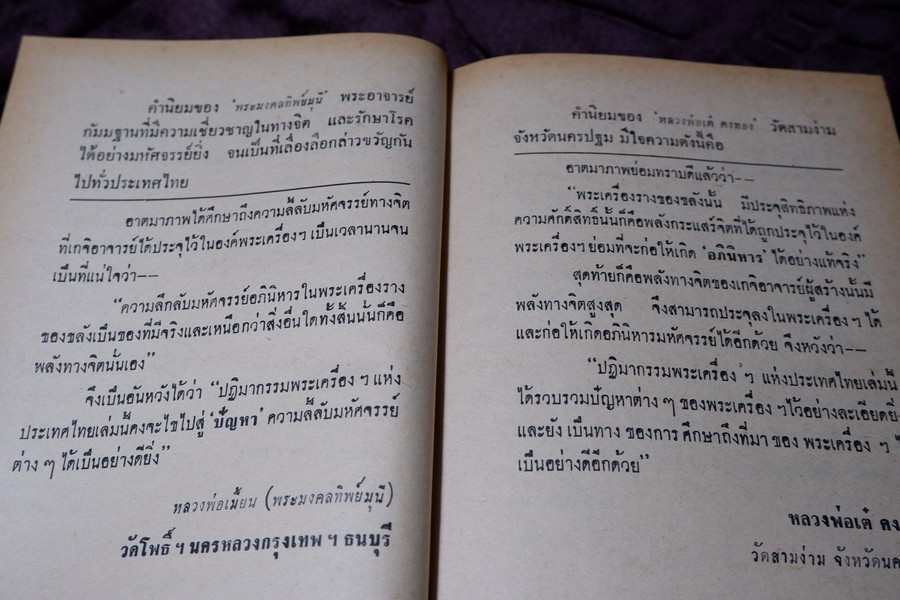 คำนิยมของ 'พระมงคลทิพย์มุนี' พระอาจารย์
กัมมฐานที่มีความเชี่ยวชาญในทางจิต และรักษาโรค
ได้อย่างมหัศจรรย์ยิ่ง จนเป็นที่เลื่องลือกล่าวขวัญกัน
ไปทั่วประเทศไทย
อาตมาภาพได้ศึกษาถึงความลี้ลับมหัศจรรย์ทางจิต
ที่เกจิอาจารย์ได้ประจุไว้ในองค์พระเครื่องฯ เป็นเวลานานจน
เป็นที่แน่ใจว่า--
“ความลึกลับมหัศจรรย์อภินิหารในพระเครื่องราง
ของขลังเป็นของที่มีจริงและเหนือกว่าสิ่งอื่นใดทั้งสิ้นนั้นก็คือ
พลังทางจิตนั้นเอง”
จึงเป็นอันหวังได้ว่า “ปฏิมากรรมพระเครื่อง ฯ แห่ง
ประเทศไทยเล่มนี้คงจะไขไปสู่ 'ปัญหา' ความลี้ลับมหัศจรรย์
ต่าง ๆ ได้เป็นอย่างดียิ่ง”
หลวงพ่อเมี้ยน (พระมงคลทิพย์มุนี)
วัดโพธิ์ ฯ นครหลวงกรุงเทพ ฯ ธนบุรี
คำนิยมของ 'หลวงพ่อเต๋ คงทอง' วัดสามง่าม
จังหวัดนครปฐม มีใจความดังนี้คือ
อาตมาภาพย่อมทราบดีแล้วว่า--
“พระเครื่องรางของขลังนั้น มีประจุสิทธิภาพแห่ง
ความศักดิ์สิทธิ์นั้นก็คือพลังกระแสร์จิตที่ได้ถูกประจุไว้ในองค์
พระเครื่องฯ ย่อมที่จะก่อให้เกิด 'อภินิหาร' ได้อย่างแท้จริง”
สุดท้ายก็คือพลังทางจิตของเกจิอาจารย์ผู้สร้างนั้นมี
พลังทางจิตสูงสุด จึงสามารถประจุลงในพระเครื่อง ฯ ได้
และก่อให้เกิดอภินิหารมหัศจรรย์ได้อีกด้วย จึงหวังว่า--
“ปฏิมากรรมพระเครื่อง ฯ แห่งประเทศไทยเล่มนี้
ได้รวบรวมปัญหาต่าง ๆ ของพระเครื่อง ฯไว้อย่างละเอียดยิ่ง
และยัง เป็นทาง ของการ ศึกษาถึงที่มา ของ พระเครื่อง ฯ
เป็นอย่างดีอีกด้วย”
หลวงพ่อเต๋ คง
วัดสามง่าม จังหวัดนค